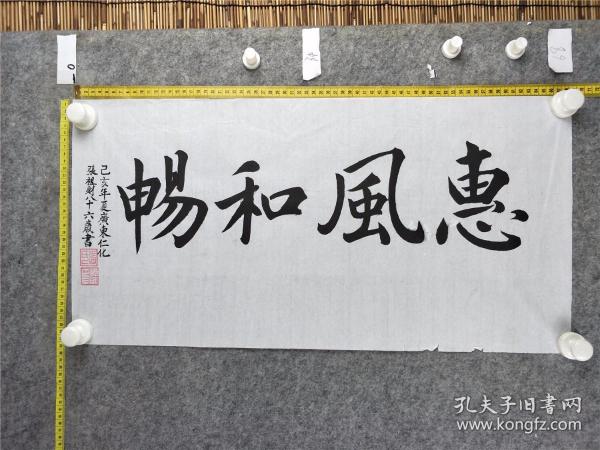 惠風和暢
己亥年夏廣東仁化
張祖財八十六歲書
孔夫子旧書网
www.kongfz.com